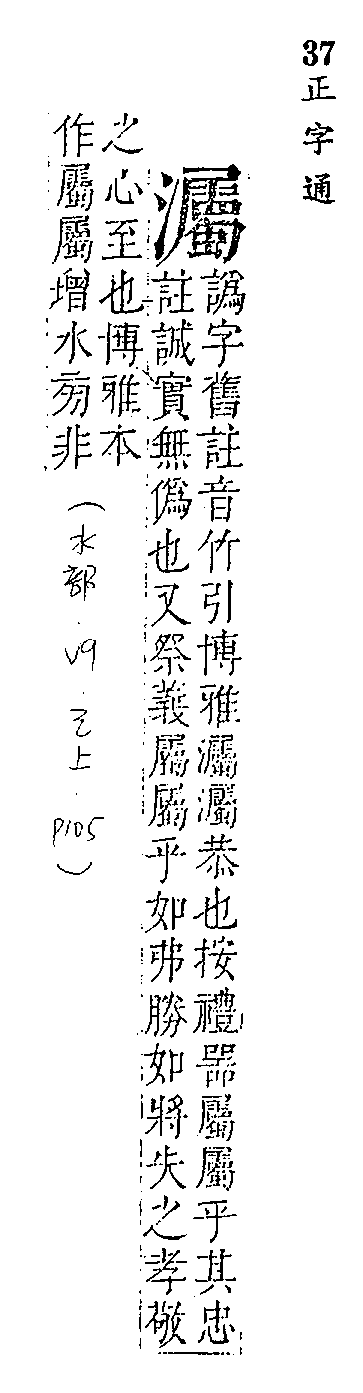 37 正字通
灟
譌字舊註音竹引博雅灟灟恭也按禮器屬屬乎其忠
註誠實無僞也又祭義屬屬乎如弗勝如將失之孝敬
之心至也博雅本
作屬屬增水旁非
（水部．V9．巳上．P105）